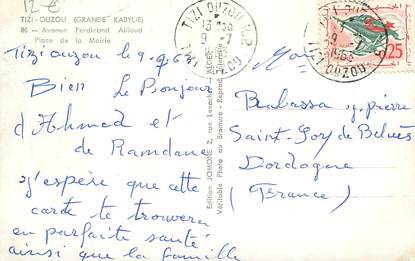 12 €
TIZI-OUZOU (GRANDE KABYLIE)
86 - Avenue Ferdinand Aillaud
Place de la Mairie
Tizi ouzou le 9.7.63
Bien Le Bonjour
d'Ahmed et
de Ramdane
j'espère que cette
carte te trouvera
en parfaite santé
ainsi que la famille
Edition JOMONE 2, rue
Véritable Photo au Bromure - Reprod.
TIZI OUZOU R.P.
13H30
9-7
1963
TIZI OUZOU
0,25
Mon
Babassa j. pierre
Saint-Foy de Belvès
Dordogne
(France)